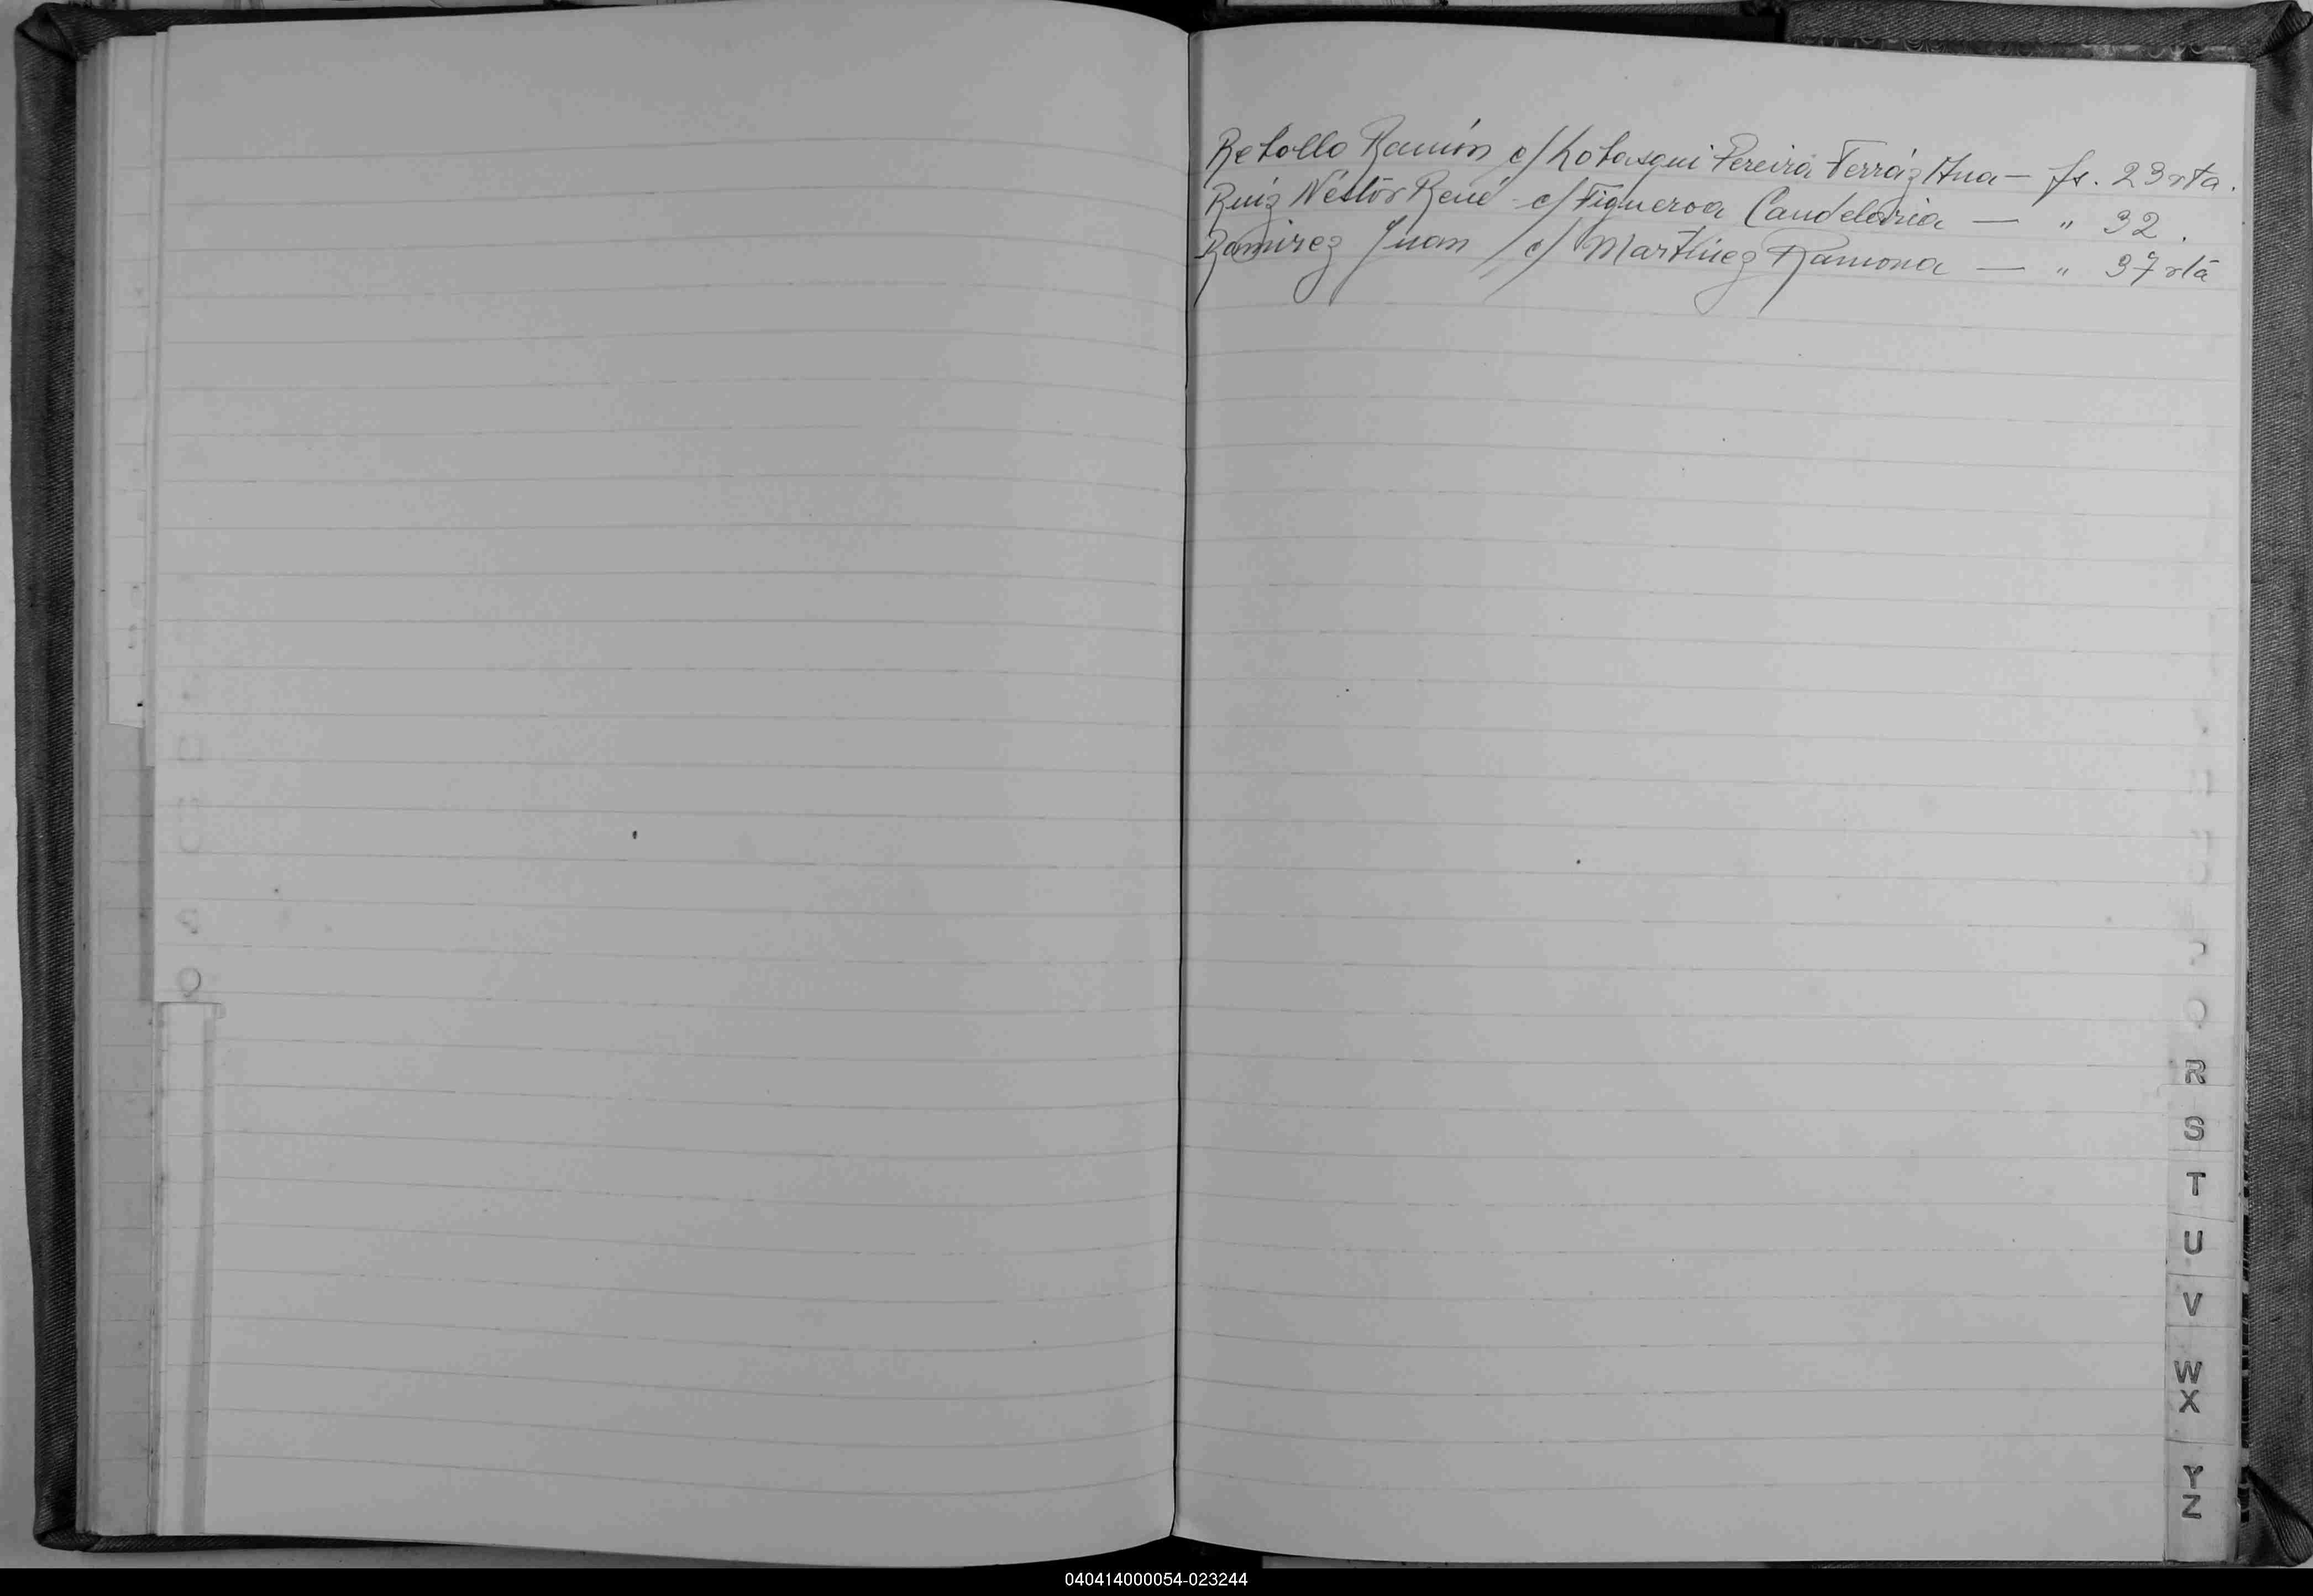 Rebollo Ramón c/ Pereira Ferráz Ana — fs. 23 vta.
Ruiz Néstor René c/ Figueroa Candelaria — " 32.
Ramirez Juan c/ Martínez Ramona — " 37 vta
Q
R
S
T
U
V
W
X
Y
Z
040414000054-023244